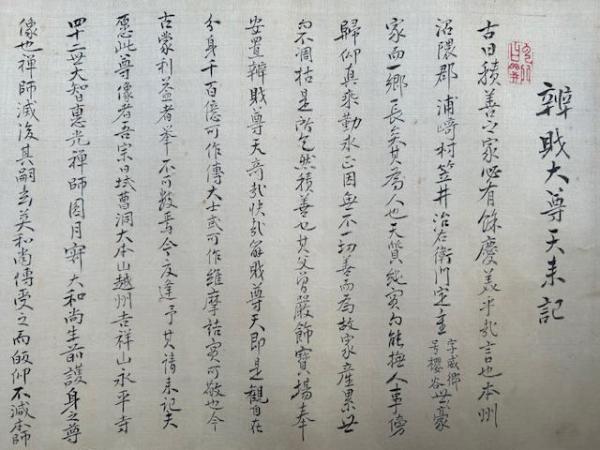 辨財大尊天来記
古曰積善之家必有餘慶美乎哉言也本州
沼隈郡浦崎村笠井治右衛門定主字威卿号櫻谷世豪
家而一郷長矣其為人也天質純実而能撫人事傍
歸仰真乘勤求正因無不一切善而為故家産累世
而不凋枯是所乞然積善也其父曽嚴飾寶場奉
安置辨財尊天奇哉快哉辨財尊天即是觀自在
分身千百億可作傳大士或可作維摩詰実可敬也今
古蒙利益者挙不可数焉今応達予其請来記夫
惟此尊像者吾宗日域曹洞大本山越州吉祥山永平寺
四十二世大智惠光禅師圓月寂大和尚生前護身之尊
像也禅師滅後其嗣玄英和尚傳受之而皈仰不減本師